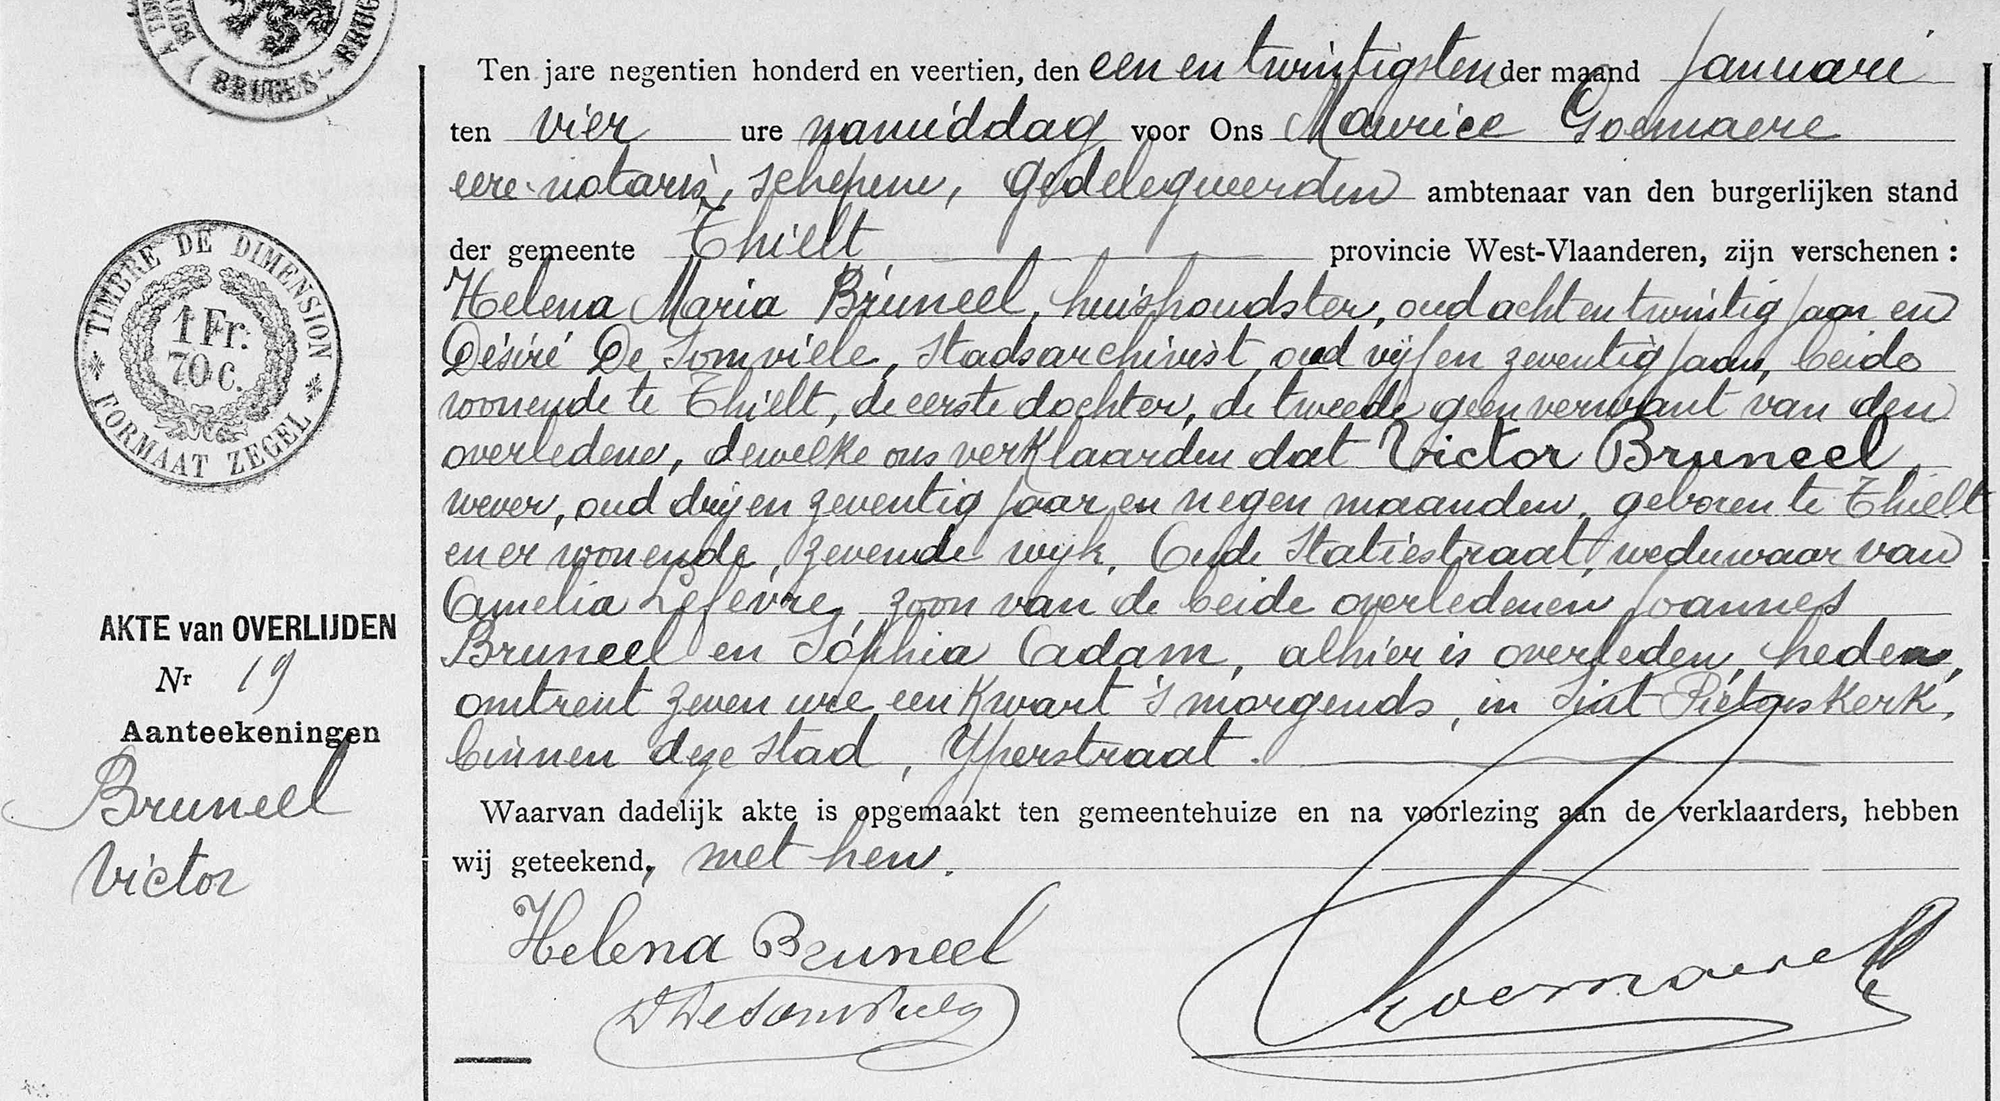 BRUGES - BRUG
TIMBRE DE DIMENSION
1 Fr.
70 c.
FORMAAT ZEGEL
AKTE van OVERLIJDEN
Nr 19
Aanteekeningen
Bruneel
Victor
Ten jare negentien honderd en veertien, den een en twintigsten der maand Januari
ten vier ure namiddag voor Ons Maurice Goemaere
eere-notaris, schepene, gedelegueerden ambtenaar van den burgerlijken stand
der gemeente Thielt provincie West-Vlaanderen, zijn verschenen :
Helena Maria Bruneel, huishoudster, oud acht en twintig jaar en
Désiré De Somviele, stadsarchivist, oud vijf en zeventig jaar, beide
woonende te Thielt, de eerste dochter, de tweede geen verwant van den
overledene, dewelke ons verklaarden dat Victor Bruneel
wever, oud drij en zeventig jaar en negen maanden, geboren te Thielt
en er woonende, zevende wijk, Oude Statiestraat, weduwaar van
Amelia Lefèvre, zoon van de beide overledenen Joannes
Bruneel en Sophia Adam, alhier is overleden, heden,
omtrent zeven ure een kwart 's morgends, in Sint Pieterskerk,
binnen deze stad, Yperstraat.
Waarvan dadelijk akte is opgemaakt ten gemeentehuize en na voorlezing aan de verklaarders, hebben
wij geteekend, met hen.
Helena Bruneel
D DeSomviele
Goemaere